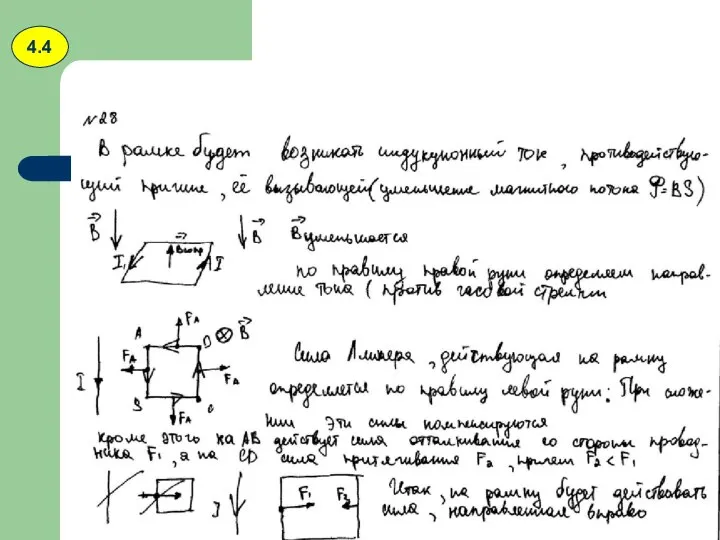 4.4
№28
В рамке будет возникать индукционный ток, противодействую-
щий причине, её вызывающей (уменьшение магнитного потока Φ=BS)
B B B уменьшается
I Bинд I
по правилу правой руки определяем направ-
ление тока (против часовой стрелки
FA
A D B
Сила Ампера, действующая на рамку
I FA FA
определяется по правилу левой руки: При сложе-
B C
FA
нии эти силы компенсируются
кроме этого на AB действует сила отталкивания со стороны провод-
ника F1, а на CD сила притягивания F2, причем F2 < F1
I F1 F2
Итак, на рамку будет действовать
сила, направленная вправо